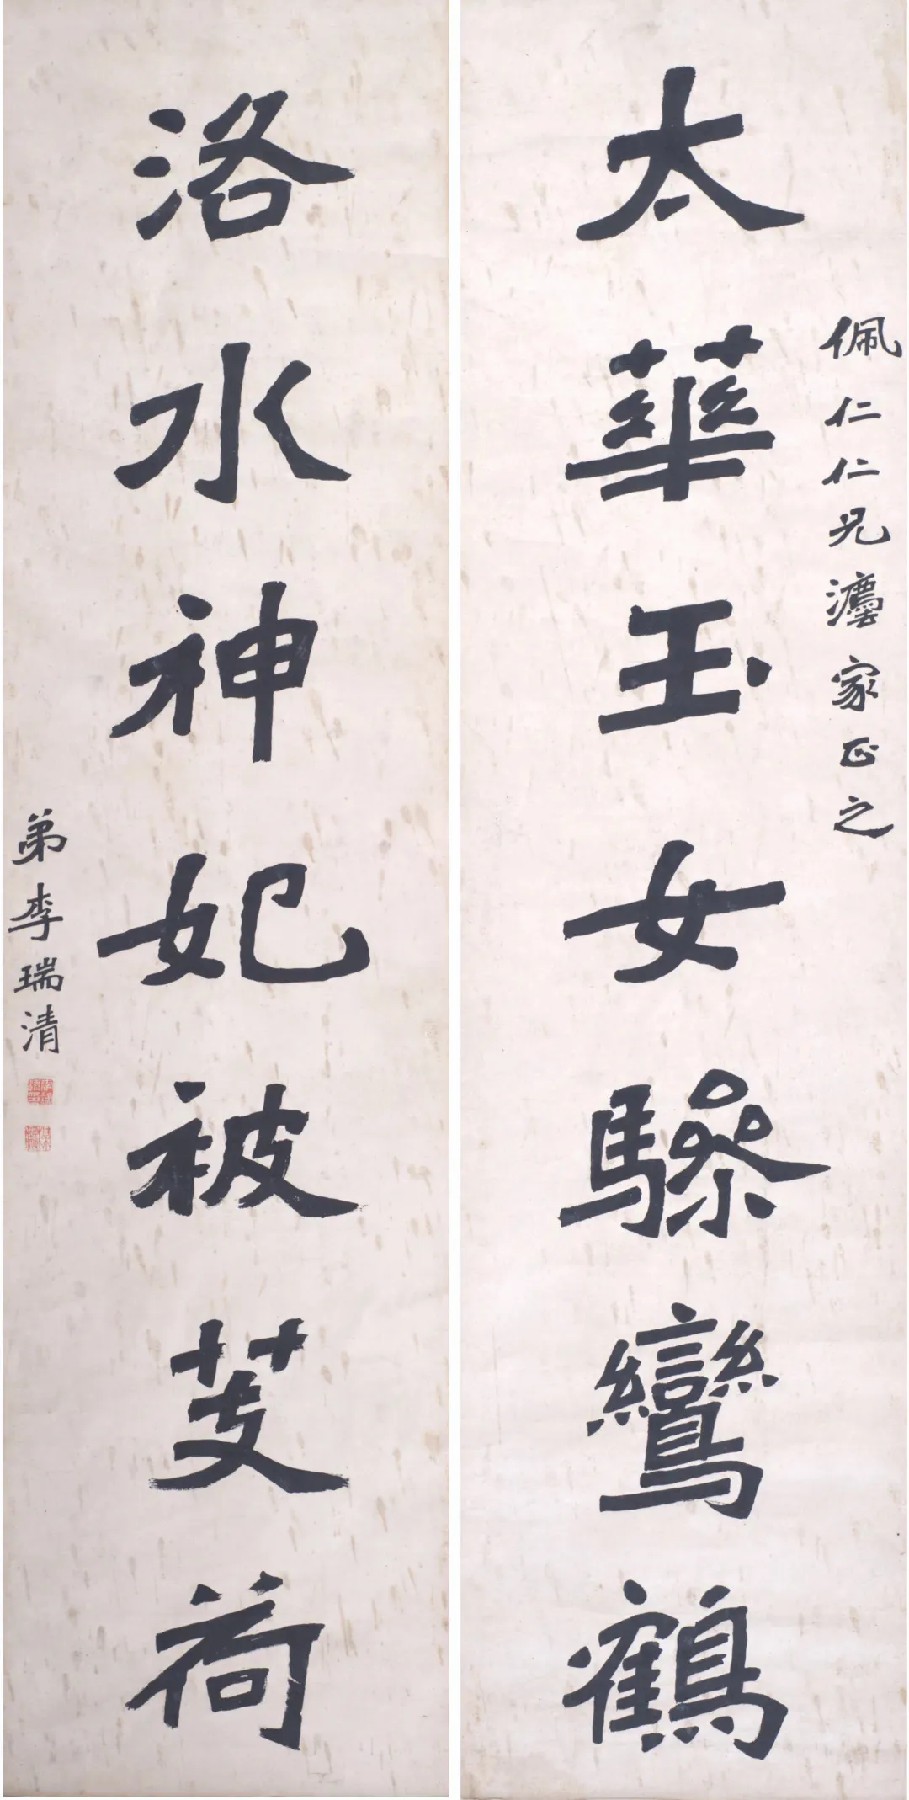 佩仁仁兄灋家正之
太華玉女驂鸞鶴
洛水神妃被芰荷
弟李瑞清